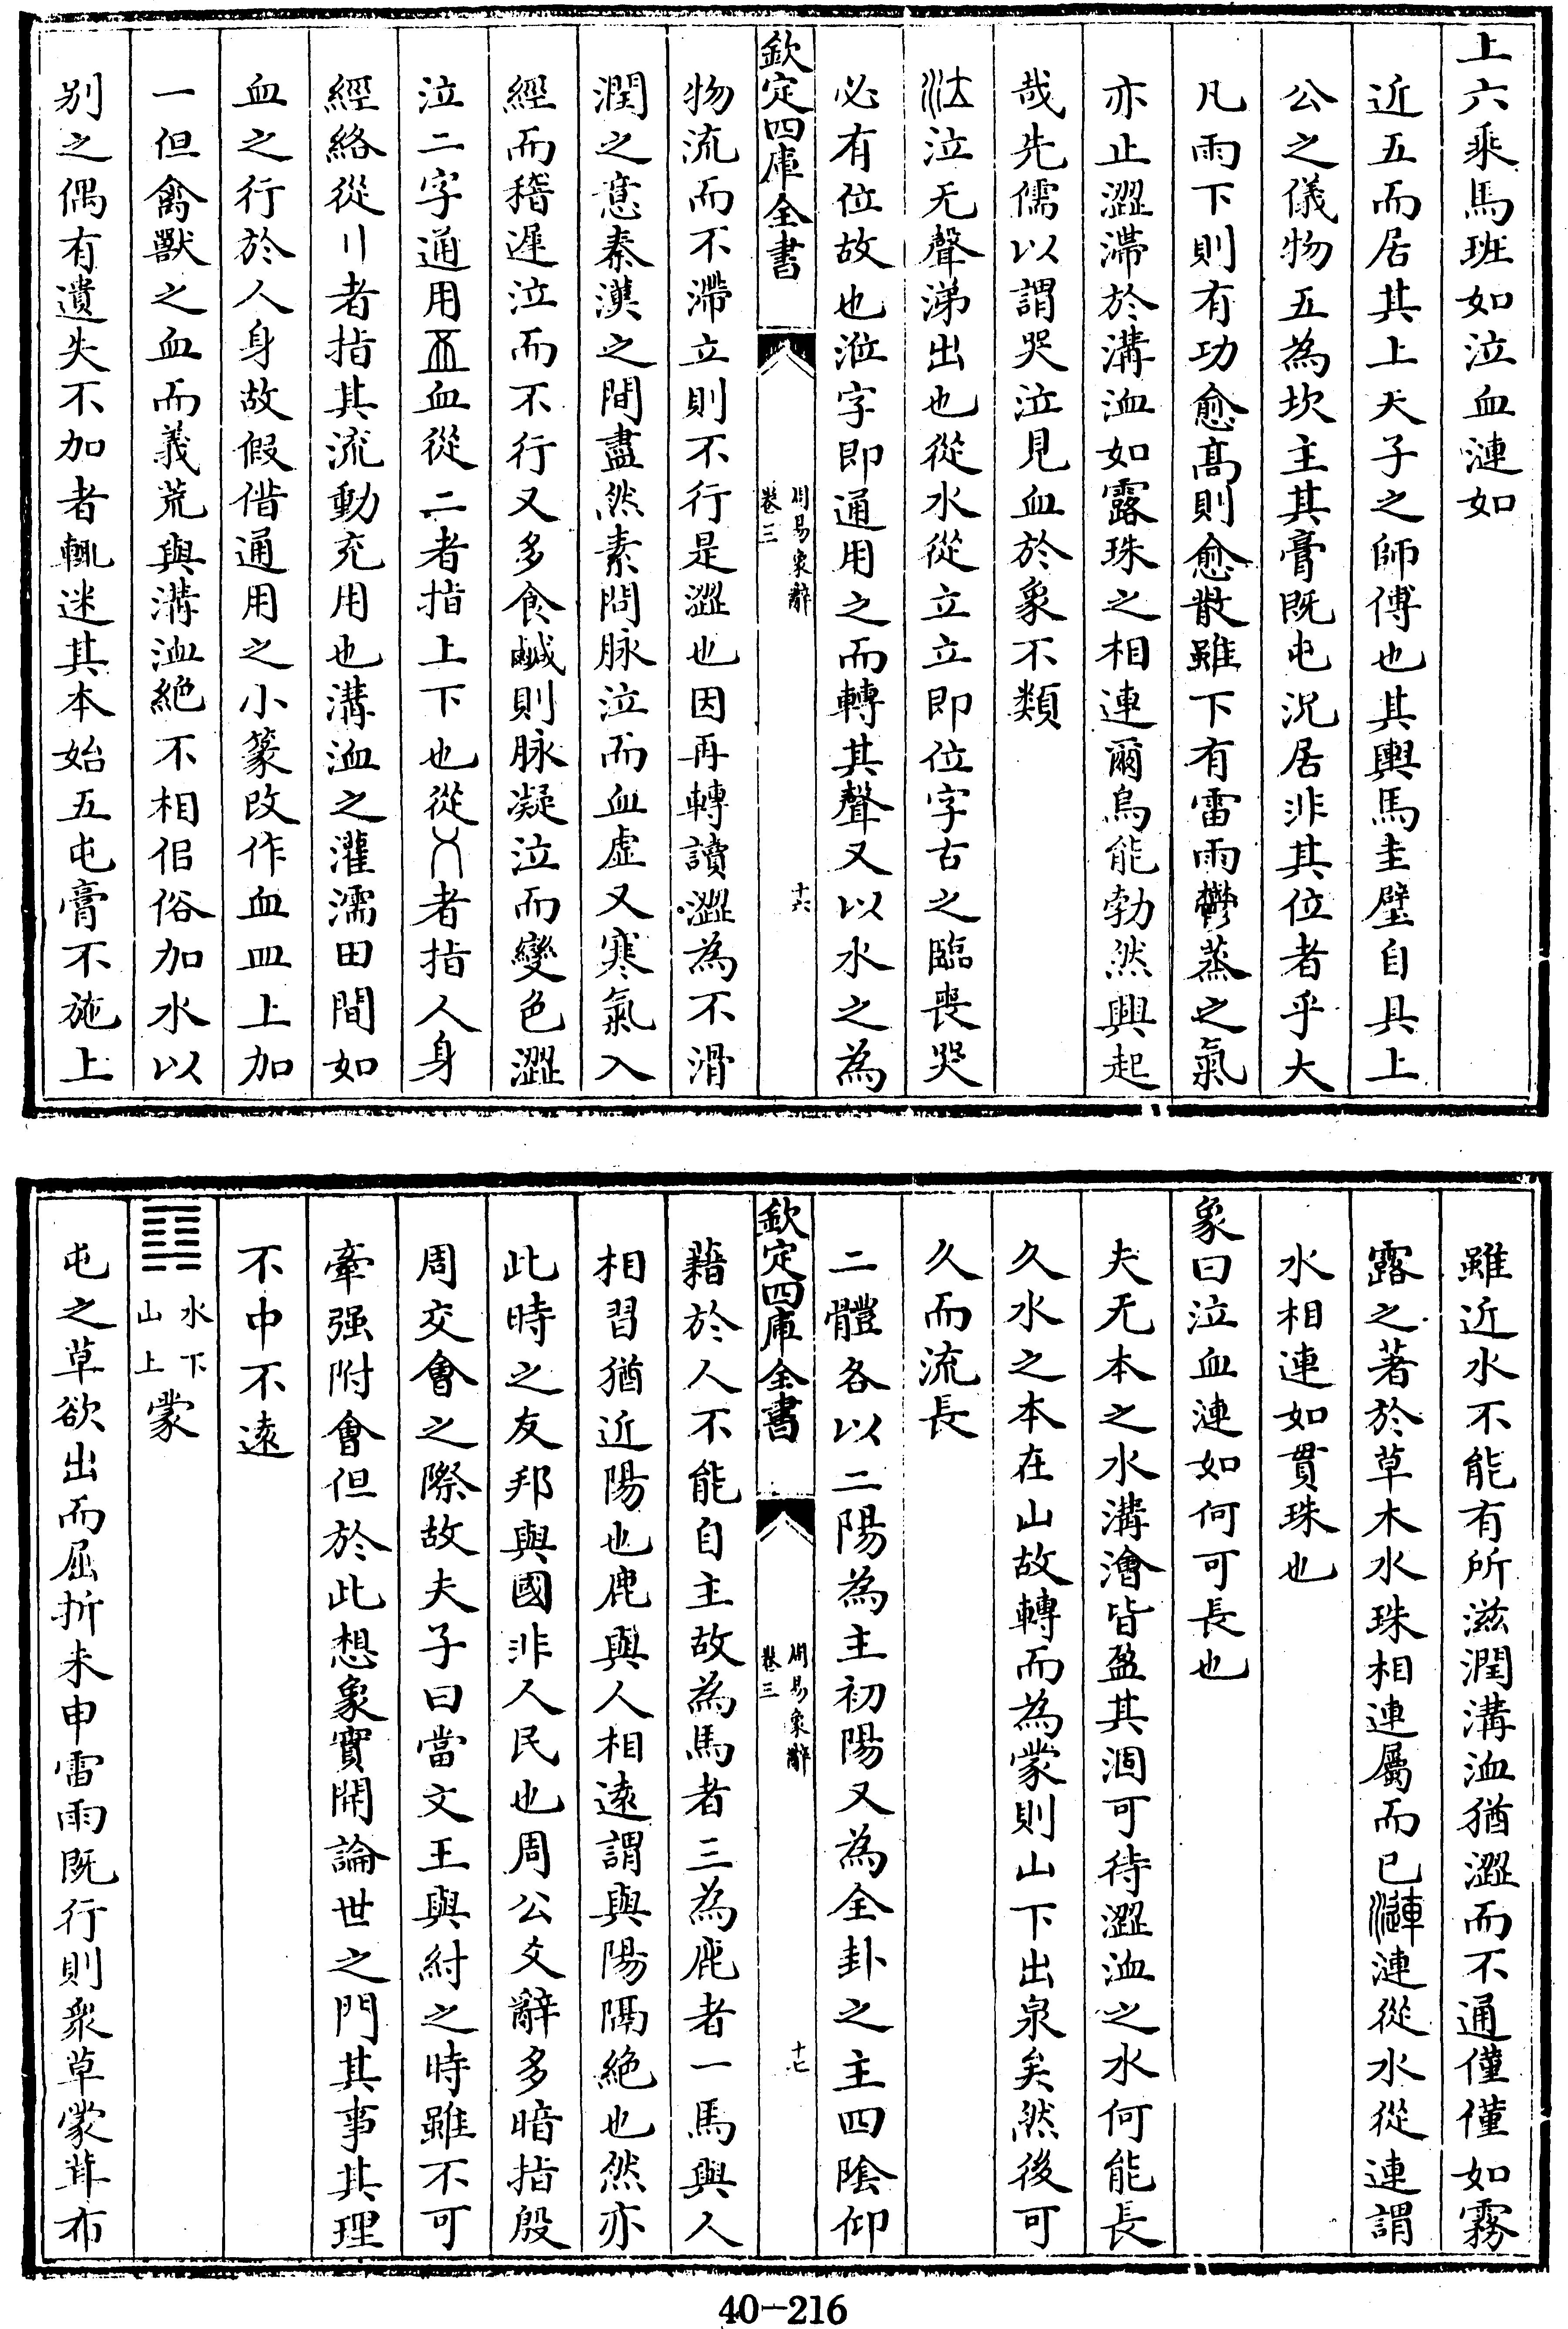 上六乘馬班如泣血漣如
近五而居其上天子之師傅也其輿馬圭璧自具上
公之儀物五為坎主其膏既屯況居非其位者乎大
凡雨下則有功愈髙則愈散雖下有雷雨鬱蒸之氣
亦止澀滯於溝洫如露珠之相連爾烏能勃然興起
哉先儒以謂哭泣見血於象不類
泣无聲涕出也從水從立立即位字古之臨喪哭
必有位故也涖字即通用之而轉其聲又以水之為
欽定四庫全書
周易象辭
卷三
十六
物流而不滯立則不行是澀也因再轉讀澀為不滑
潤之意秦漢之間盡然素問脉泣而血虛又寒氣入
經而稽遲泣而不行又多食鹹則脉凝泣而變色澀
泣二字通用血從二者指上下也從者指人身
經絡從〢者指其流動充用也溝洫之灌濡田間如
血之行於人身故假借通用之小篆改作血皿上加
一但禽獸之血而義荒與溝洫絶不相侣俗加水以
别之偶有遺失不加者輒迷其本始五屯膏不施上
雖近水不能有所滋潤溝洫猶澀而不通僅僅如霧
露之著於草木水珠相連屬而已漣從水從連謂
水相連如貫珠也
象曰泣血漣如何可長也
夫无本之水溝澮皆盈其涸可待澀洫之水何能長
久水之本在山故轉而為蒙則山下出泉矣然後可
久而流長
二體各以二陽為主初陽又為全卦之主四陰仰
欽定四庫全書
周易象辭
卷三
十七
藉於人不能自主故為馬者三為鹿者一馬與人
相習猶近陽也鹿與人相逺謂與陽隔絶也然亦
此時之友邦與國非人民也周公爻辭多暗指殷
周交會之際故夫子曰當文王與紂之時雖不可
牽强附會但於此想象實開論世之門其事其理
不中不逺
水下
山上
蒙
屯之草欲出而屈折未申雷雨既行則衆草蒙茸布
40-216